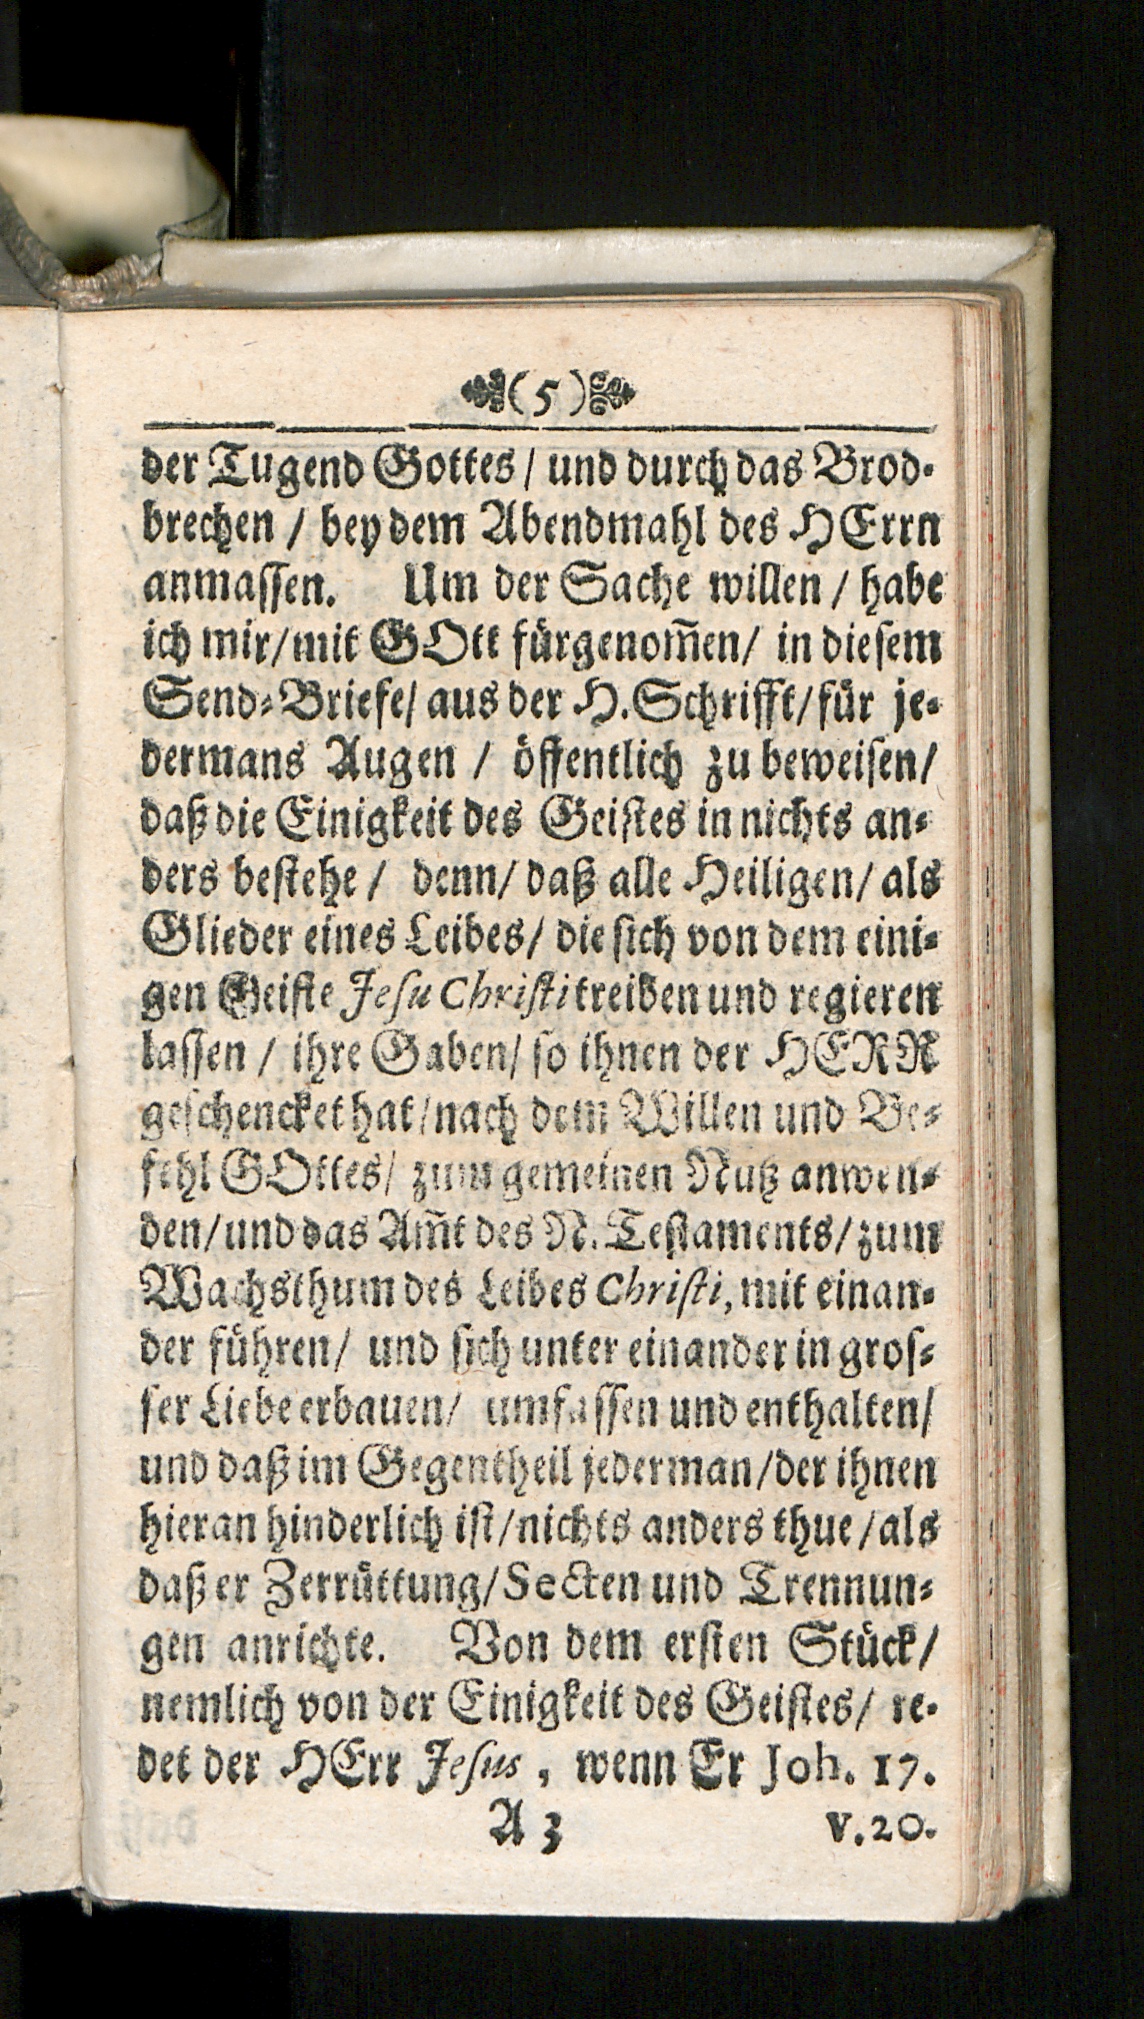 (5)
der Tugend Gottes / und durch das Brod-
brechen / bey dem Abendmahl des HErrn
anmassen. Um der Sache willen / habe
ich mir/mit GOtt fürgenom̃en/ in diesem
Send-Briefe/ aus der H.Schrifft/für je-
dermans Augen / öffentlich zu beweisen/
daß die Einigkeit des Geistes in nichts an-
ders bestehe / denn/ daß alle Heiligen/ als
Glieder eines Leibes/ die sich von dem eini-
gen Geiste Jesu Christi treiben und regieren
lassen / ihre Gaben/ so ihnen der HERR
geschencket hat/nach dem Willen und Be-
fehl GOttes/ zum gemeinen Nutz anwen-
den/und das Am̃t des N. Testaments/zum
Wachsthum des Leibes Christi, mit einan-
der führen/ und sich unter einander in gros-
ser Liebe erbauen/ umfassen und enthalten/
und daß im Gegentheil jederman/der ihnen
hieran hinderlich ist/nichts anders thue/als
daß er Zerrüttung/Secten und Trennun-
gen anrichte. Von dem ersten Stück/
nemlich von der Einigkeit des Geistes/ re-
det der HErr Jesus, wenn Er Joh. 17.
A 3 v.20.